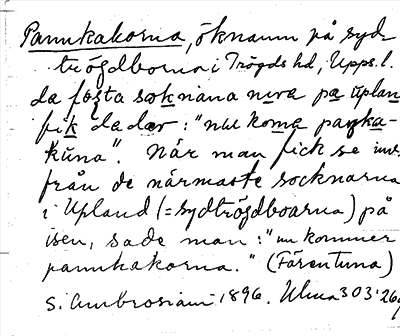 Pannkakorna, öknamn på syd-
trögdborna i Trögds hd, Uppl.
da fösta soknana nera på uplan
fik da där: "nu koma pank-
kuna". När man fick se
från de närmaste socknarna
i Upland (= sydtrögdboarna) på
isen, sade man: "nu kommer
pannkakorna." (Färentuna)
S. Ambrosiani 1896. Ulma 303:26